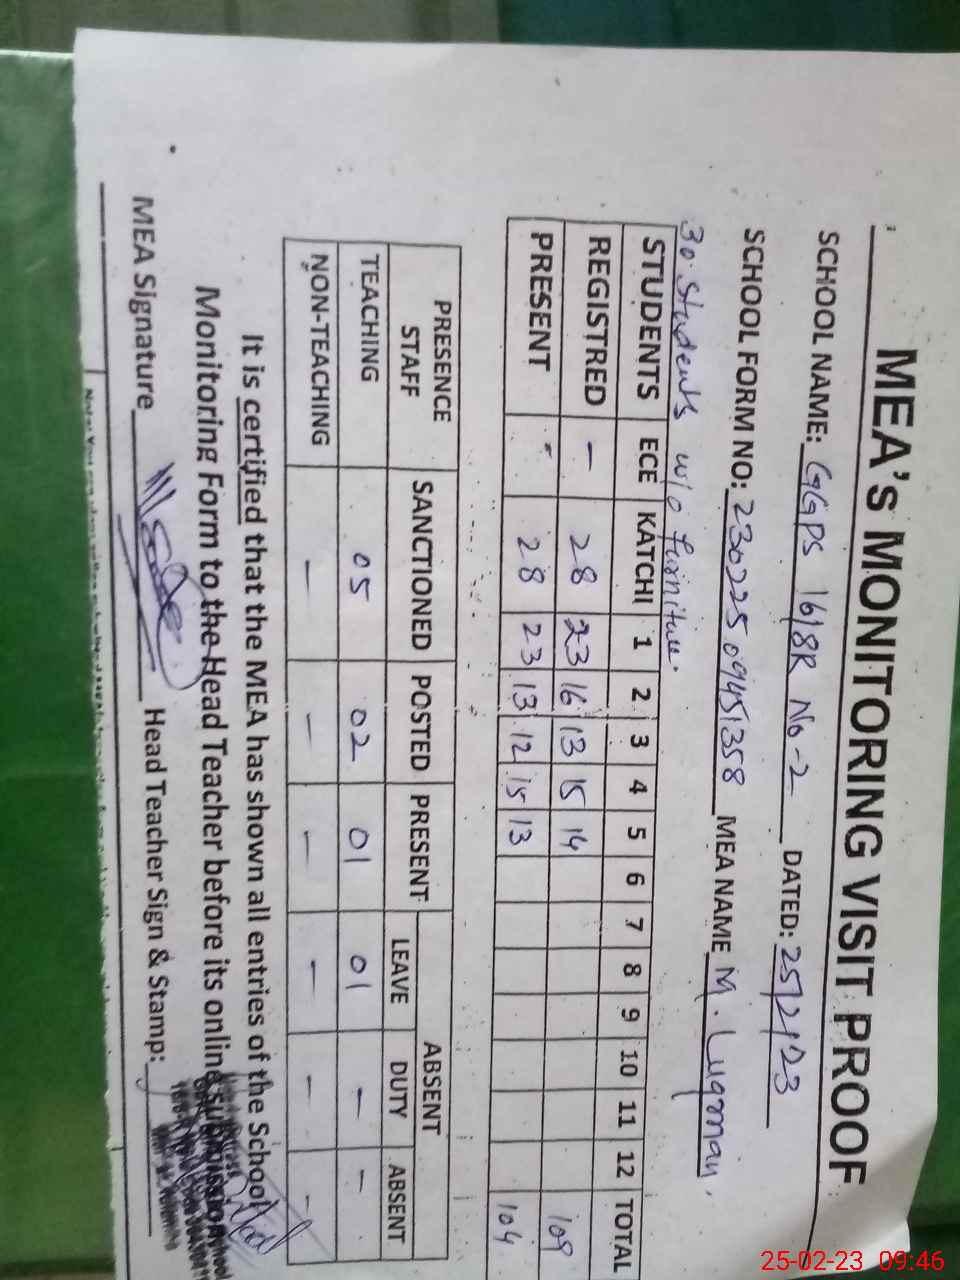 MEA's MONITORING VISIT PROOF
SCHOOL NAME: GGPS 16/8R No-2 DATED: 25/2/23
SCHOOL FORM NO: 230225 09451358 MEA NAME M. Luqman.
30 Students w/o furniture.
STUDENTS ECE KATCHI 1 2 3 4 5 6 7 8 9 10 11 12 TOTAL
REGISTRED – 28 23 16 13 15 14 109
PRESENT - 28 23 13 12 15 13 104
PRESENCE STAFF SANCTIONED POSTED PRESENT ABSENT
LEAVE DUTY ABSENT
TEACHING 05 02 01 01 – –
NON-TEACHING – – – – – -
It is certified that the MEA has shown all entries of the School
Monitoring Form to the Head Teacher before its online submission
MEA Signature Head Teacher Sign & Stamp:
25-02-23 09:46